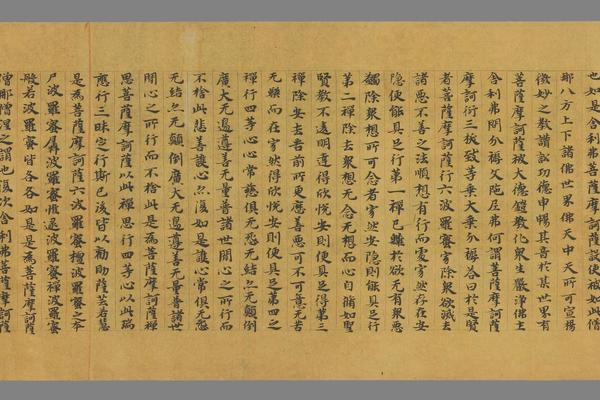 也如是舍利弗菩薩摩訶薩誐使被如此僧
耶八方上下諸佛世界佛天中天所可宣揚
微妙之教讃訟功德申暢其音於其世界有
菩薩摩訶薩被大德鎧教化衆生嚴淨佛土
舍利弗問分耨文陁尼弗何謂菩薩摩訶薩
摩訶衍三拔致等乗大乗分耨荅曰於是賢
者菩薩摩訶薩行六波羅蜜寂除衆欲滅去
諸惡不善之法順想有行而處寂然存在安
隱便能具足行第一禪已離於欲无有衆惡
蠲除衆想所可念者寂然安隱則能具足行
第二禪除去衆想无念无想而心自備如聖
賢教不遠明達得欣悅安則便具足得第三
禪除安去苦前所更應善惡可不可意无苦
无樂而在寂然得欣悅安則便具足第四之
禪行四等心心常慈俱无恚无結无顛倒
廣大无邊遵善无量普諸世間心之所行而
不捨此悲喜護心亦復如是護心常俱无恚
无結亦无顛倒廣大无邊遵善无量普諸世
間心之所行而不捨此是為菩薩摩訶薩禪
思菩薩摩訶薩以此禪思行四等心以此瑞
應行三昧定行斯已後皆以勸助薩芸若慧
是為菩薩摩訶薩六波羅蜜檀波羅蜜之本
尸波羅蜜羼波羅蜜惟逮波羅蜜禪波羅蜜
般若波羅蜜皆各各如是是為菩薩摩訶薩
僧那僧涅之謂也復次舍利弗菩薩摩訶薩